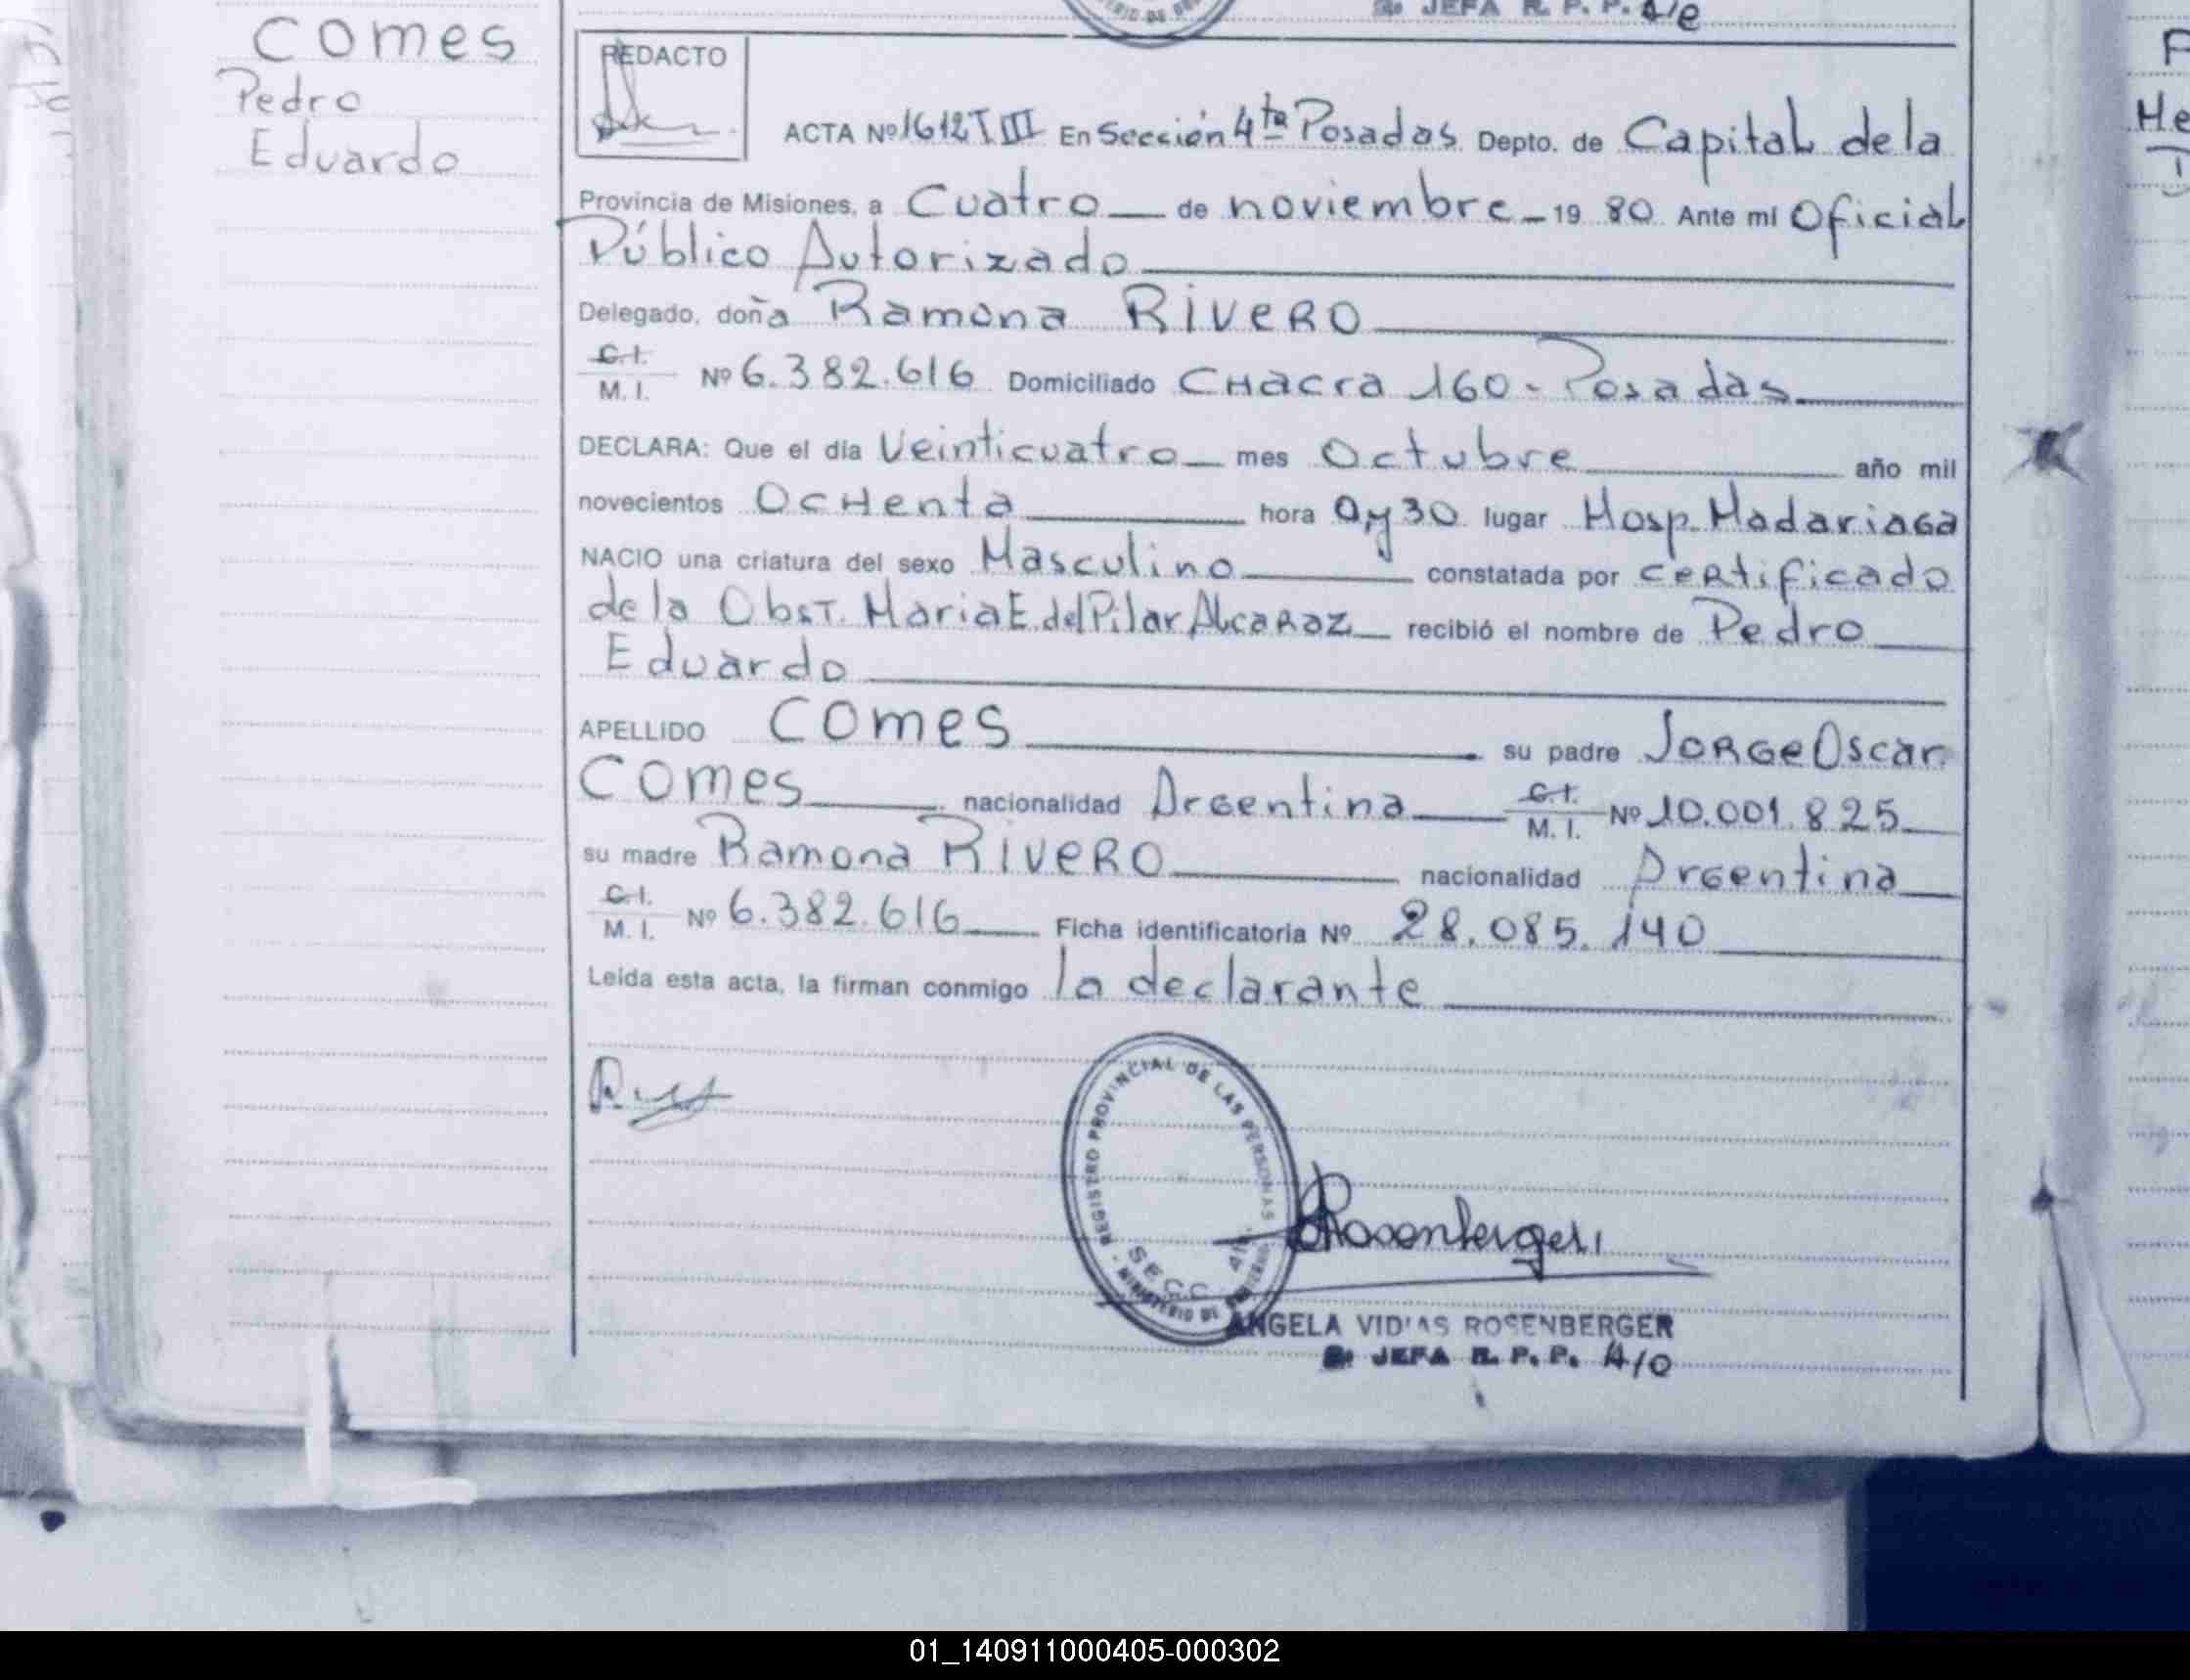 JEFA R. P. P. A/e
Comes
Pedro
Eduardo
REDACTO
ACTA Nº 1612 T III En Sección 4ta Posadas Depto. de Capital de la
Provincia de Misiones, a Cuatro de noviembre 19 80 Ante mi Oficial
Público Autorizado
Delegado, doña Ramona RIVERO
C.I.
M. I. Nº 6.382.616 Domiciliado CHacra 160 - Posadas
DECLARA: Que el día Veinticuatro mes Octubre año mil
novecientos OcHenta hora 0 y 30 lugar Hosp. Madariaga
NACIO una criatura del sexo Masculino constatada por certificado
de la Obst. Maria E. del Pilar Alcaraz recibió el nombre de Pedro
Eduardo
APELLIDO COMES su padre Jorge Oscar
COMES nacionalidad Argentina C.I.
M. I. Nº 10.001.825
su madre Ramona RIVERO nacionalidad Argentina
C.I.
M. I. Nº 6.382.616 Ficha identificatoria Nº 28.085.140
Leída esta acta, la firman conmigo la declarante
REGISTRO PROVINCIAL DE LAS PERSONAS
SECC. 4ta.
MINISTERIO DE GOBIERNO
Rosenberger
ANGELA VIDIAS ROSENBERGER
JEFA R. P. P. A/O
01_140911000405-000302